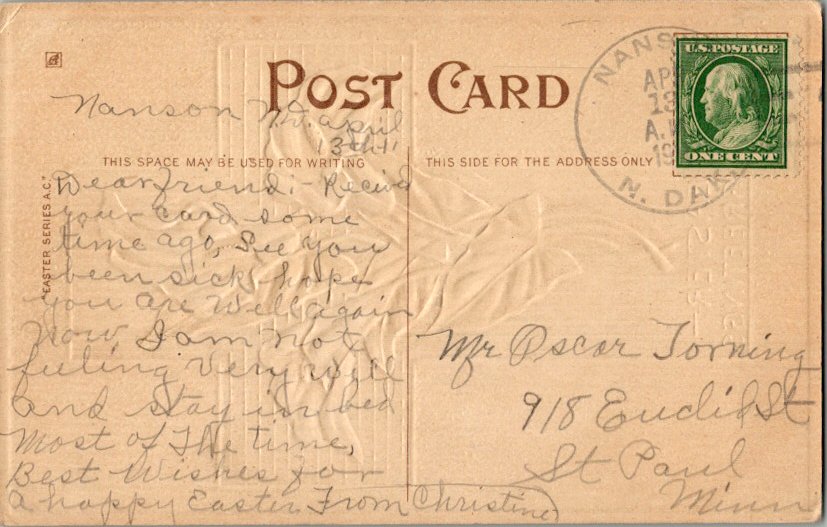 POST CARD
Nanson N.D. April
13th 11
THIS SPACE MAY BE USED FOR WRITING
THIS SIDE FOR THE ADDRESS ONLY
"EASTER SERIES A.C."
Dear friend:- Recived
your card some
time ago, See you
been sick, hope
you are well again
Now, I am not
feeling very well
and stay in bed
most of the time,
Best Wishes for
a happy Easter From Christine
Mr Oscar Torning
918 Euclid St
St Paul
Minn
NANS
APR
13
A.M.
19
N. DAK
U.S. POSTAGE
ONE CENT